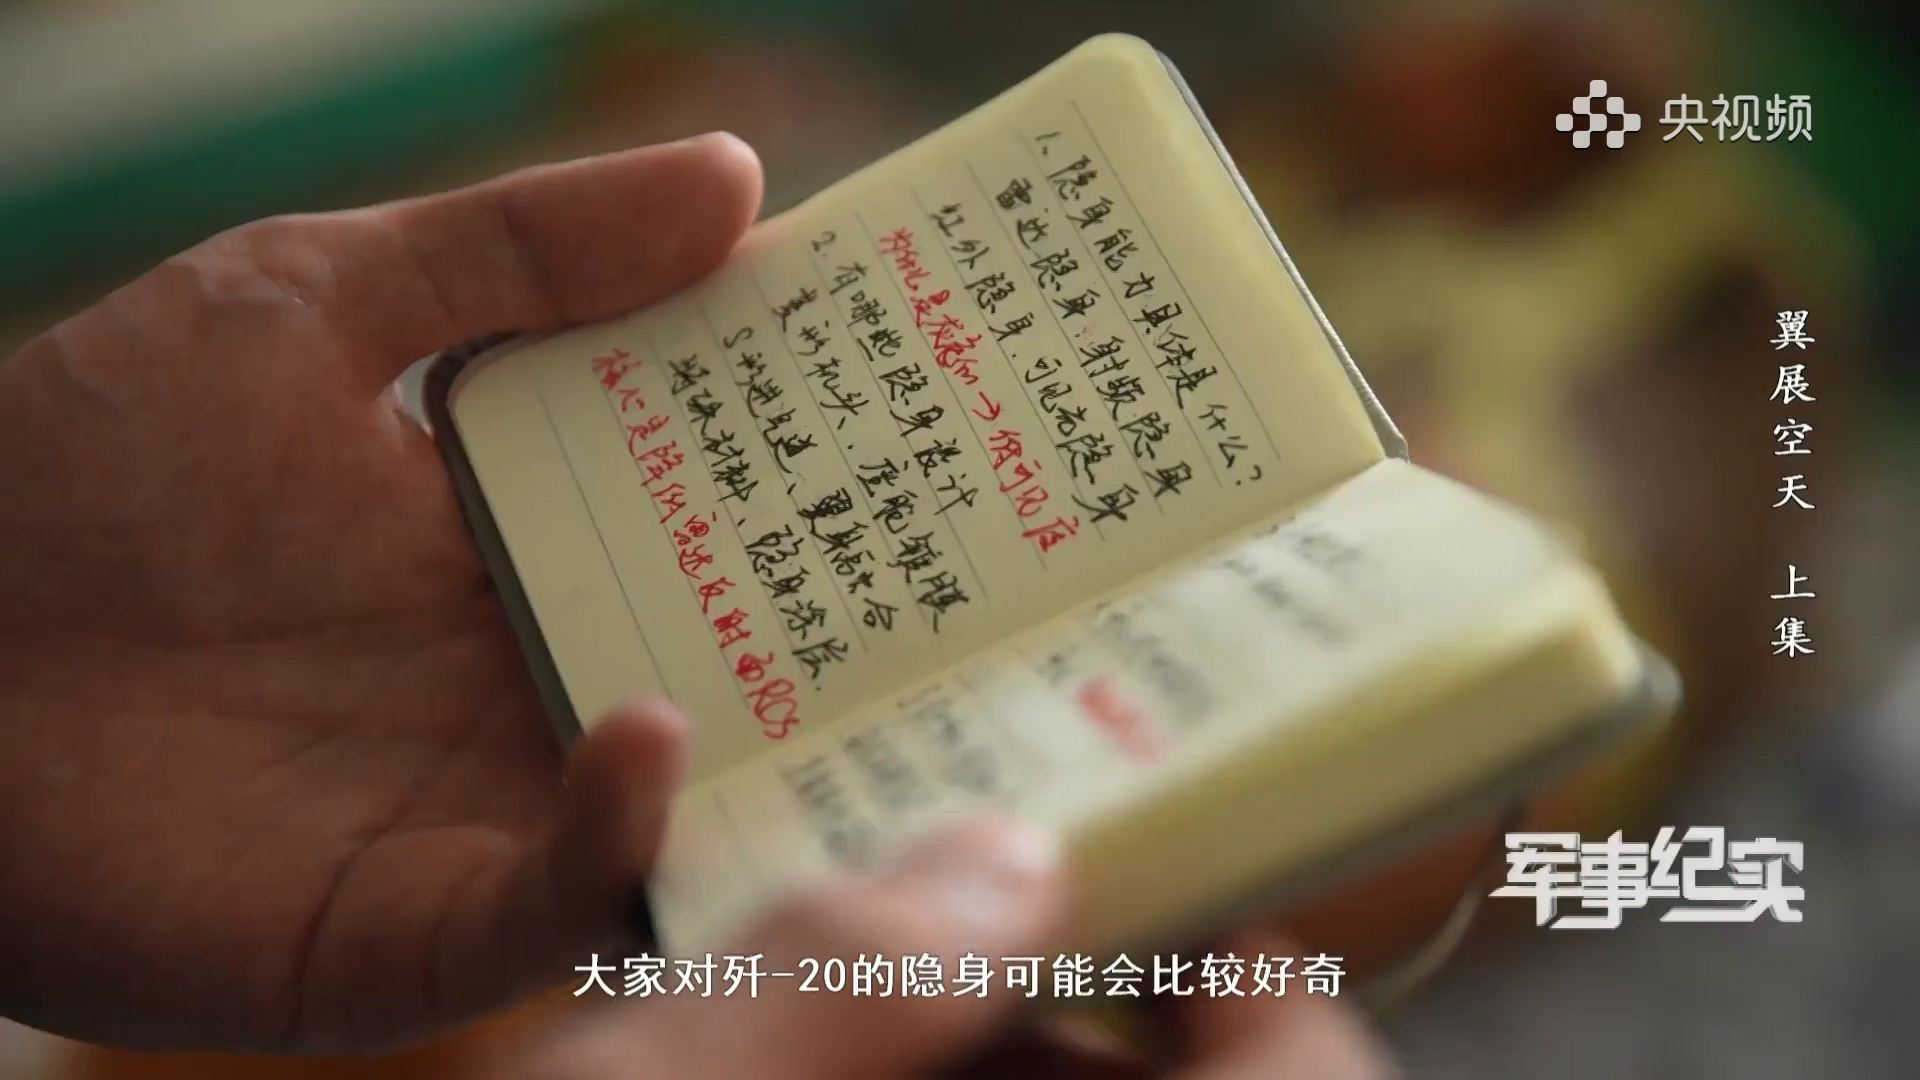 央视频
翼展空天 上集
1、隐身能力具体是什么?
雷达隐身、射频隐身
红外隐身、可见光隐身
是 → 低可见度
2. 有哪些隐身设计
菱形机头、座舱镀膜
S形进气道、翼身融合
特殊材料、隐身涂层.
核心是降低雷达反射面RCS
军事纪实
大家对歼-20的隐身可能会比较好奇